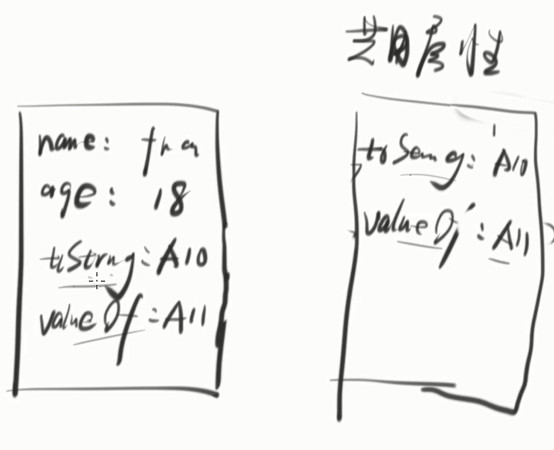 name: fran
age: 18
toString: A10
valueOf: A11
共用属性
toString: A10
valueOf: A11